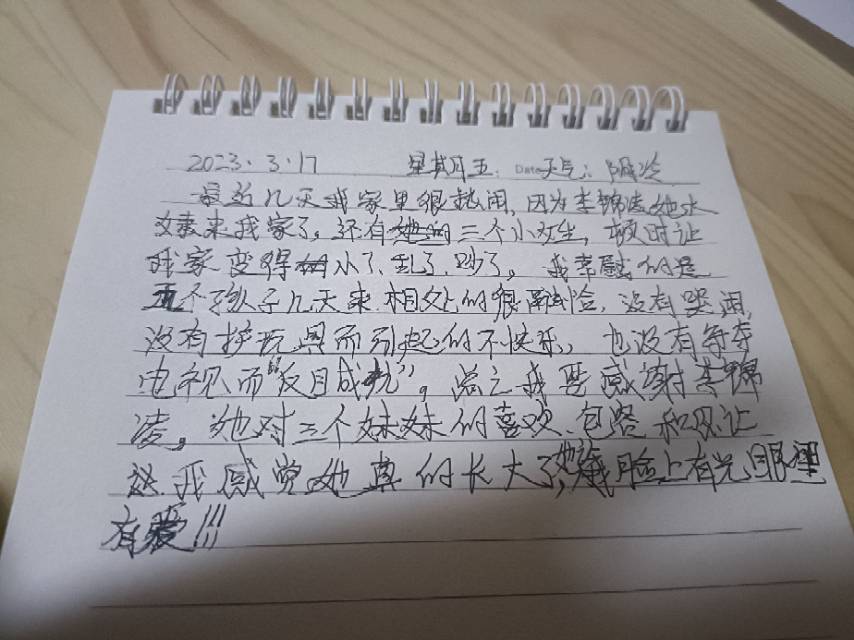 2023.3.17 星期五. Date天气:阴冷
最近几天我家里很热闹,因为李锦凌她
来我家了。还有三个小女生,顿时让
我家变得小了、乱了、吵了。我幸慰的是
五个孩子几天来相处的很融恰,没有哭闹,
没有抢玩具而引起的不快乐,也没有争夺
电视而"反目成仇"。总之我要感谢李锦
凌。她对三个妹妹的喜欢、包容和忍让
我感觉她真的长大了,她让我脸上有光眼里
有爱!!!